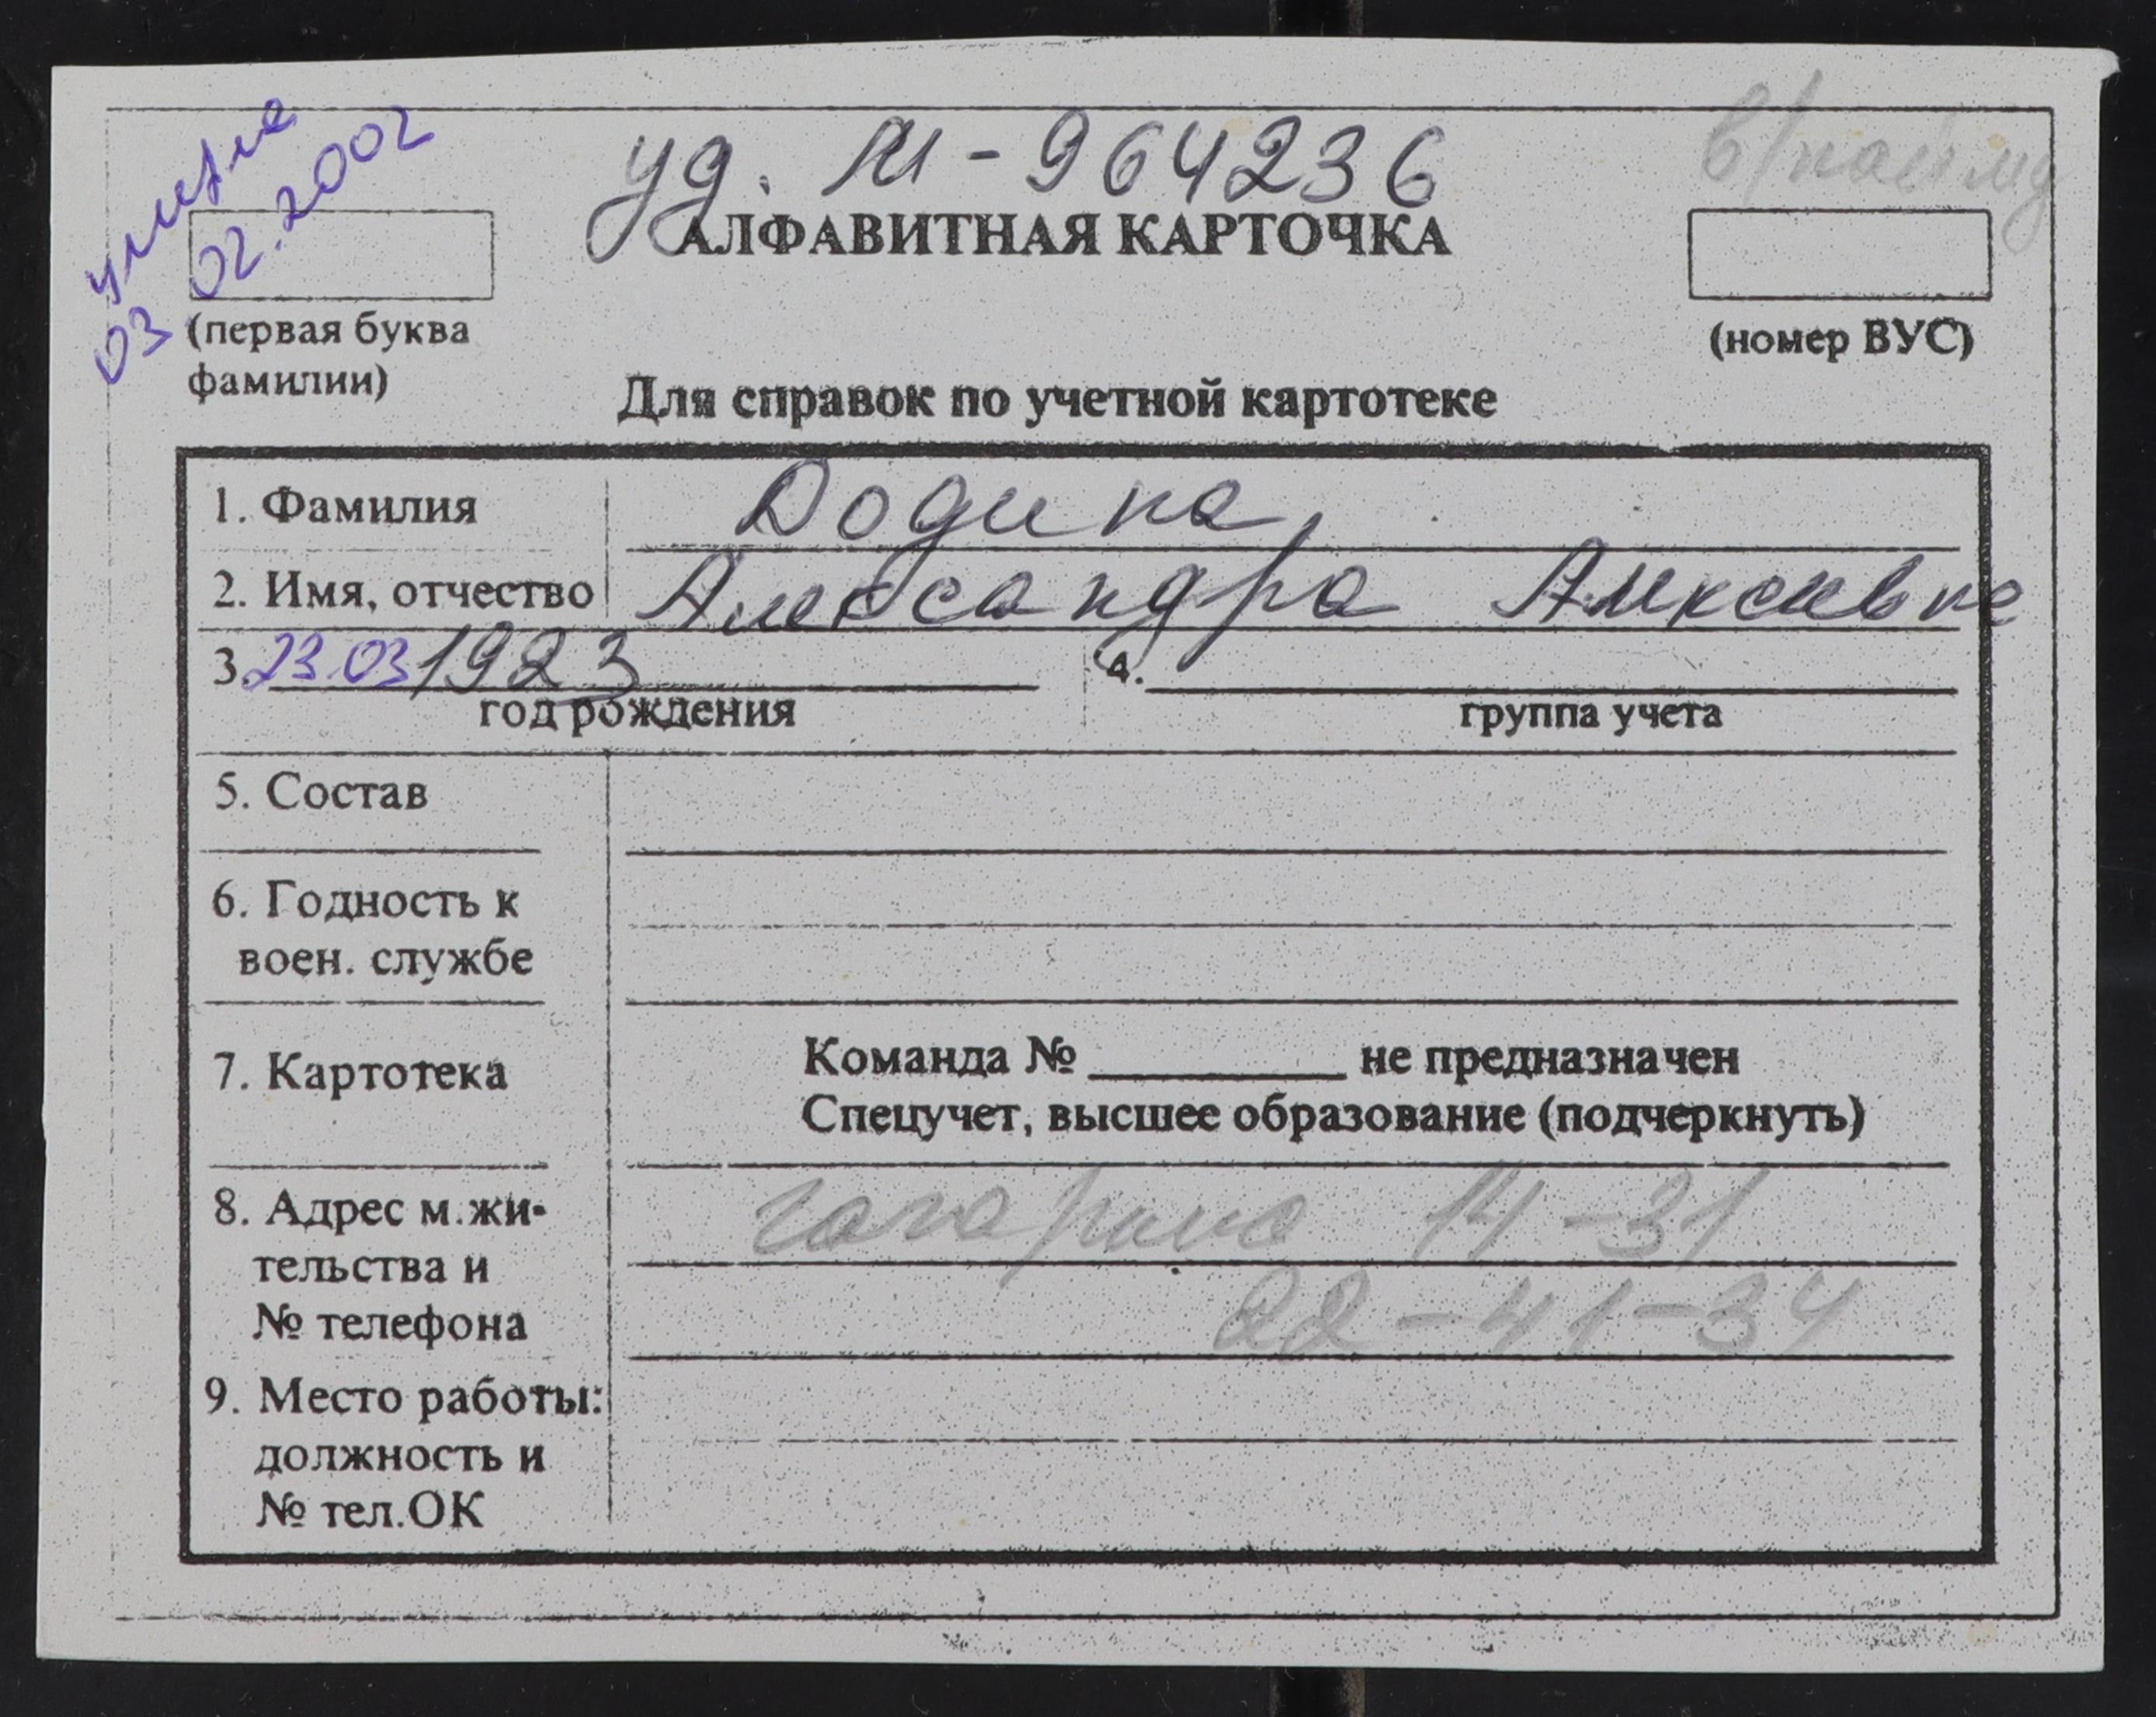 умерла
03 02.2002
уд. М-964236
в/найму
АЛФАВИТНАЯ КАРТОЧКА
(первая буква
фамилии)
(номер ВУС)
Для справок по учетной картотеке
1. Фамилия Додина,
2. Имя, отчество Александра Алексеевна
3. 23.03 1923 4.
год рождения группа учета
5. Состав
6. Годность к
воен. службе
7. Картотека
Команда № не предназначен
Спецучет, высшее образование (подчеркнуть)
8. Адрес м.жи-
тельства и
№ телефона
Гагарина 14-31
22-41-34
9. Место работы:
должность и
№ тел.ОК